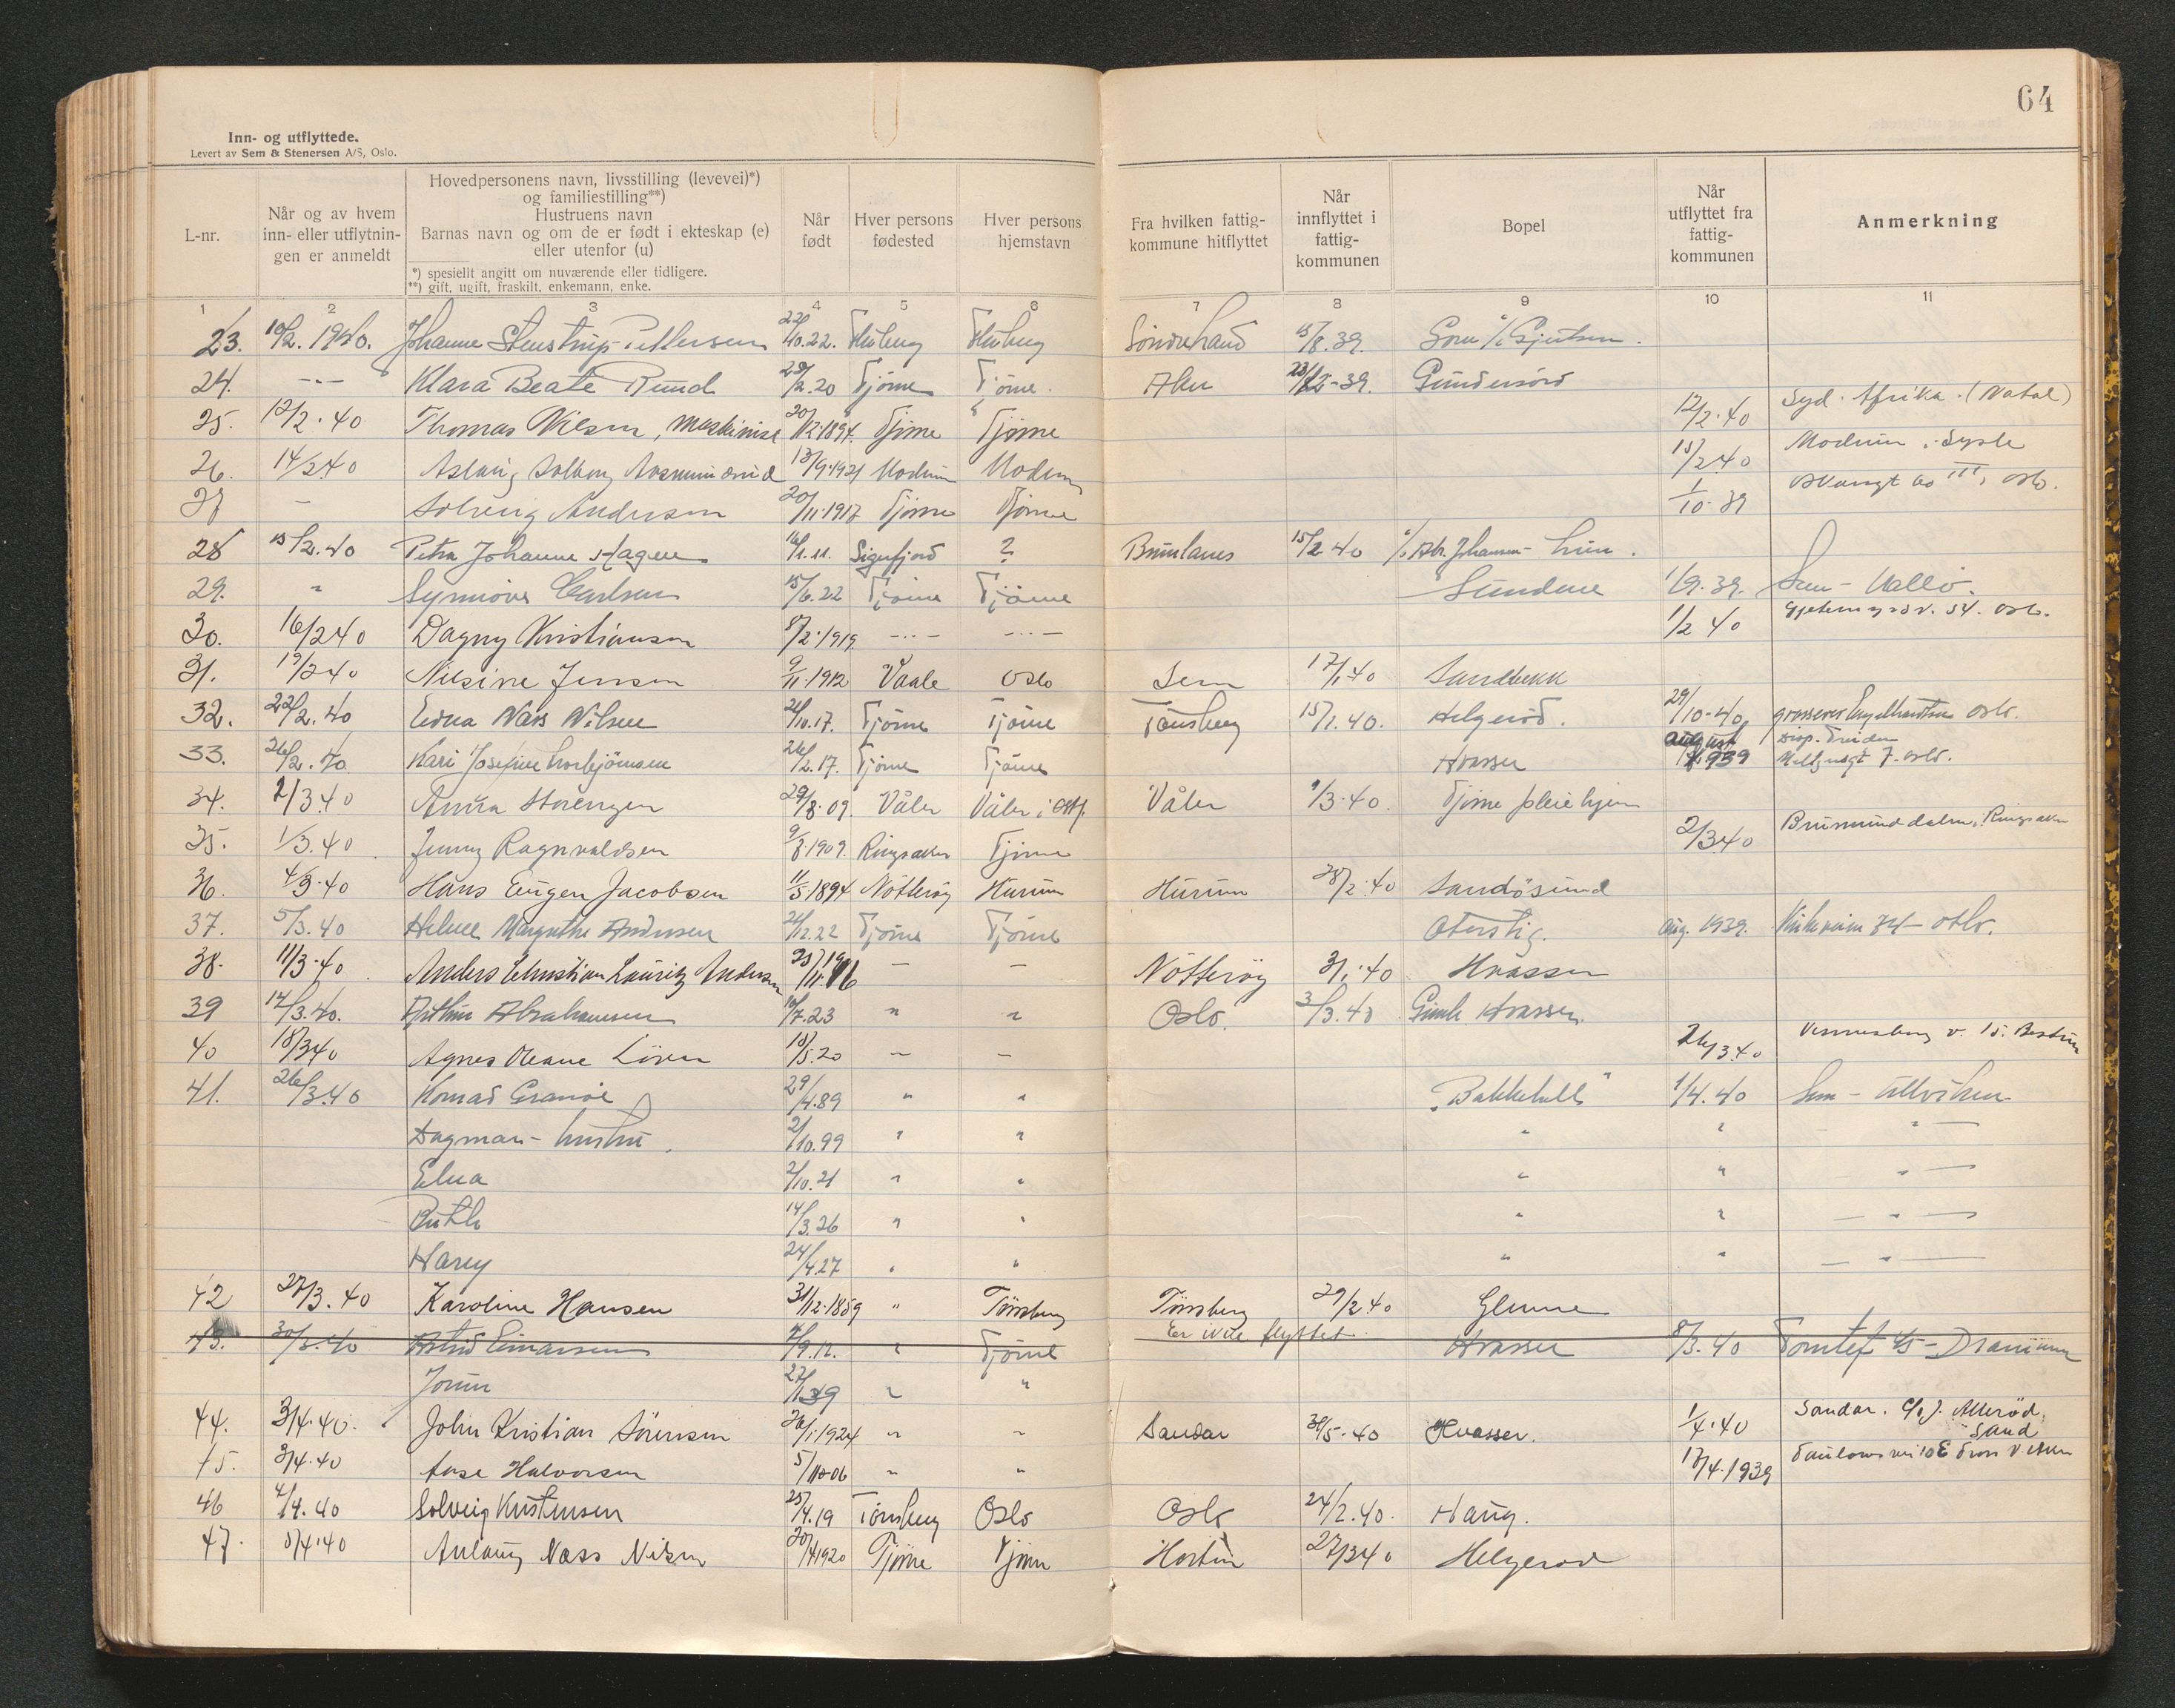 64
Inn- og utflyttede.
Levert av Sem & Stenersen A/S, Oslo.
L-nr.
Når og av hvem inn- eller utflytnin-gen er anmeldt
Hovedpersonens navn, livsstilling (levevei)*)
og familiestilling**)
Hustruens navn
Barnas navn og om de er født i ekteskap (e)
eller utenfor (u)
*) spesiellt angitt om nuværende eller tidligere.
**) gift, ugift, fraskilt, enkemann, enke.
Når født
Hver persons fødested
Hver persons hjemstavn
Fra hvilken fattig-kommune hitflyttet
Når innflyttet i fattig-kommunen
Bopel
Når utflyttet fra fattig-kommunen
Anmerkning
1 2 3 4 5 6 7 8 9 10 11
23. 10/2. 1940. Johanne Pettersen 22/10.22. 15/8.39.
24. -"- Klara Beate Ruud 29/2.20 Tjöme Tjöme. Aker 23/12-39. Gundersrød
25. 12/2.40 Thomas Nilsen, maskinist 20/12.1894. Tjöme Tjöme 12/2.40 Syd. Afrika. (Natal)
26. 14/2.40 Aslaug Solborg 13/9.1921 Modum Modum 15/2.40 Modum
27 - Solveig Andersen 20/11.1917 Tjöme Tjöme 1/10.39 III, Oslo.
28 15/2.40 Petra Johanne Hagen 16/1.11. Sigerfjord ? Brunlanes 15/2.40
29. " Synnöve Carlsen 15/6.22 Tjöme Tjöme Sundene 1/9.39. Sem - Vallö.
30. 16/2.40 Dagny Kristiansen 8/2.1919 -"- -"- 1/2.40 54. Oslo.
31. 19/2.40 Nilsine Jensen 9/11.1912 Vaale Oslo Sem 17/1.40 Sandbekk
32. 22/2.40 Edna Næs Nilsen 21/10.17. Tjöme Tjöme Tönsberg 15/1.40. Helgeröd. 29/10-40 grosserer Engelhardtsen Oslo.
33. 26/2.40 Kari Josefine Torbjörnsen 26/2.17. Tjöme Tjöme Hvasser august 1939 7. Oslo.
34. 2/3.40 Anna Storengen 29/8.09. Våler Våler i Østf. Våler 1/3.40. Tjöme pleiehjem
35. 1/3.40. Jenny Ragnvaldsen 9/8.1909. Ringsaker Tjöme 2/3.40 Brumunddalen, Ringsaker
36. 4/3.40 Hans Eugen Jacobsen 11/5.1894 Nötteröy Hurum Hurum 28/2.40 Sandösund
37. 5/3.40 Helene Margrethe Andersen 21/12.22 Tjöme Tjöme Oterstig. aug. 1939. Kirkeveien 34 - Oslo.
38. 11/3.40. Anders Christian Lauritz Andersen - - Nötteröy 3/1.40 Hvasser
39 14/3.40. Arthur Abrahamsen 10/7.23 " " Oslo. 3/3.40 Gimle Hvasser.
40 18/3.40 Agnes Oleane Lören 18/5.20 - - 26/3.40 Vennersborg v. 15. Bestum
41. 26/3.40 Konrad Granöe 29/4.89 " " "Bakketull" 1/4.40 Sem -
Dagmar - hustru. 2/10.99 " " " " - " -
Elna 2/10.21 " " " " - " -
Ruth 14/3.26 " " " " - " -
Harry 24/4.27 " " " " - " -
42 27/3.40 Karoline Hansen 31/12.1859 " Tönsberg Tönsberg 29/2.40 Glenne
Er ikke flyttet.
43. 30/3.40 Astrid Einarsen 4/9.12. " Tjöme Hvasser 8/3.40 Tomtef 45 - Drammen
Jorun 27/1.39 " "
44. 3/4.40. John Kristian Sörensen 26/1.1924 " " Sandar 31/5.40 Hvasser. 1/4.40 Sandar. c/o J. Alleröd, Sand
45. 3/4.40 Aase Halvorsen 5/10-06 " " 17/4.1939
46 4/4.40 Solveig Kristensen 25/4.19 Tönsberg Oslo Oslo 24/2.40. Haug.
47. 8/4.40 Anlaug Næss Nilsen 20/4.1920 Tjöme Tjöme Horten 27/3.40 Helgeröd